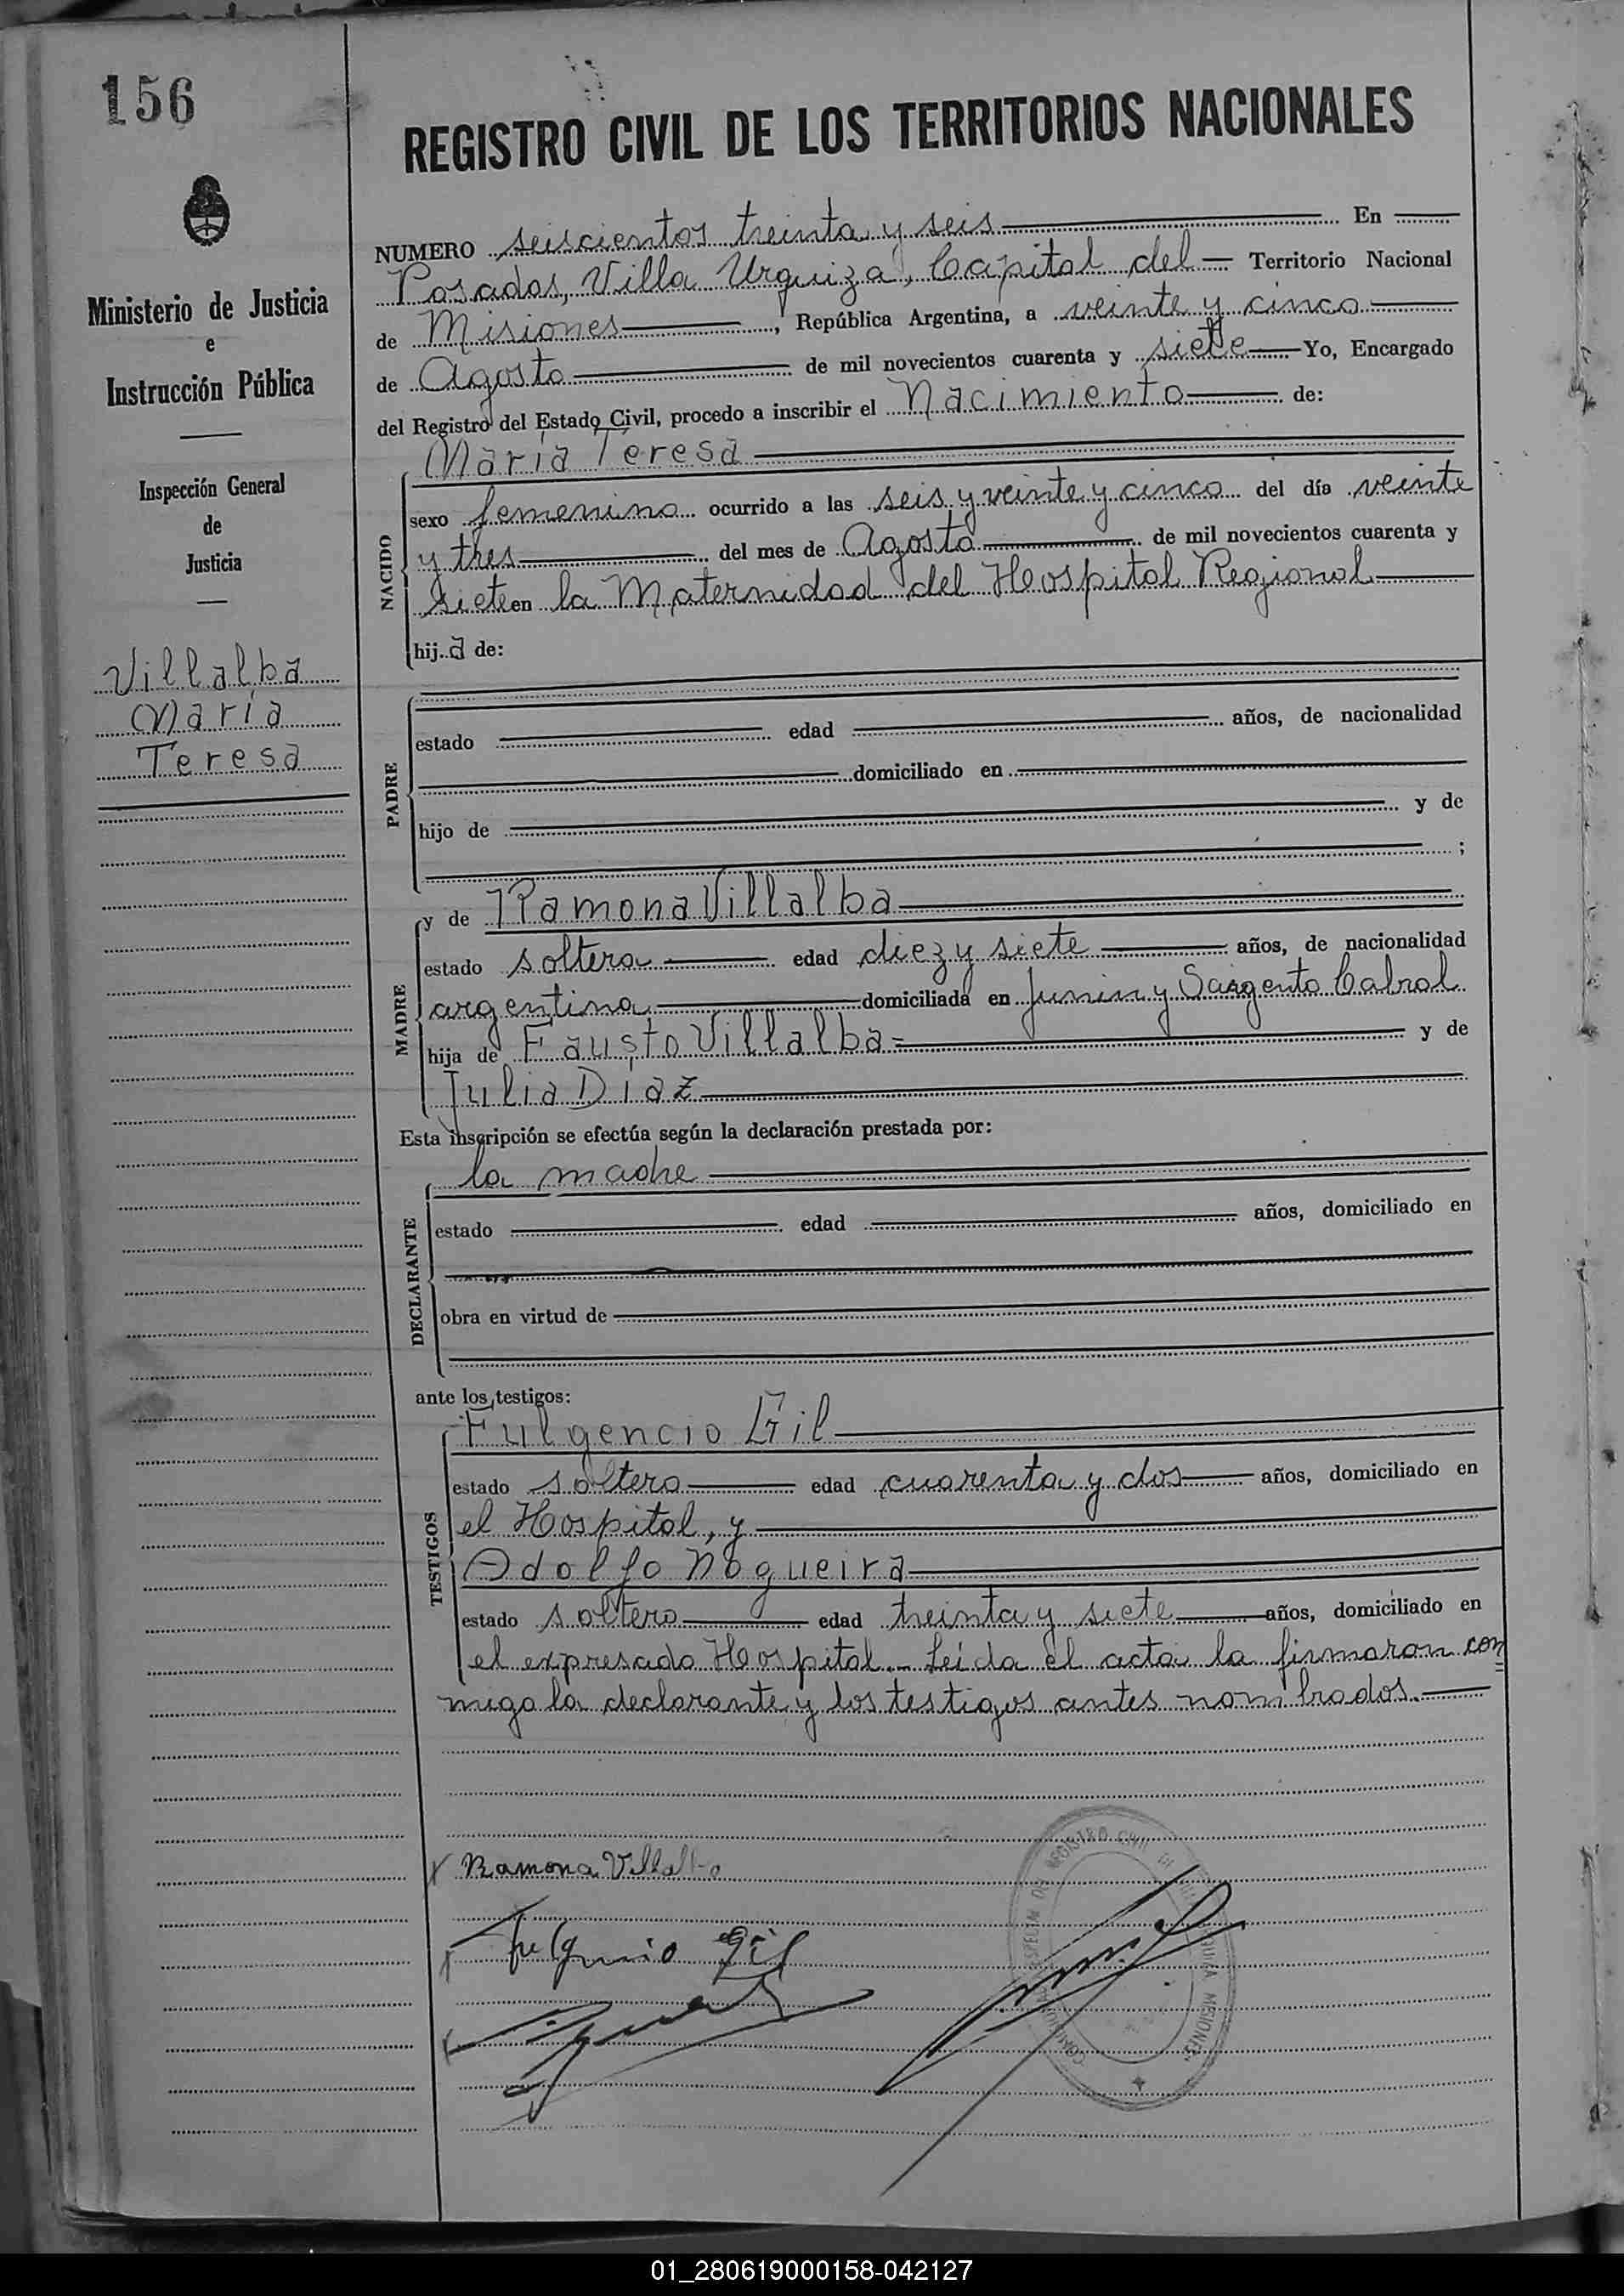 156
REGISTRO CIVIL DE LOS TERRITORIOS NACIONALES
Ministerio de Justicia
e
Instrucción Pública
Inspección General
de
Justicia
Villalba
María
Teresa
NUMERO seiscientos treinta y seis En
Posadas, Villa Urquiza, Capital del Territorio Nacional
de Misiones, República Argentina, a veinte y cinco
de Agosto de mil novecientos cuarenta y siete Yo, Encargado
del Registro del Estado Civil, procedo a inscribir el Nacimiento de:
NACIDO
María Teresa
sexo femenino ocurrido a las seis y veinte y cinco del día veinte
y tres del mes de Agosto de mil novecientos cuarenta y
siete en la Maternidad del Hospital Regional
hij a de:
PADRE
estado edad años, de nacionalidad
domiciliado en
hijo de y de
;
MADRE
y de Ramona Villalba
estado soltera edad diez y siete años, de nacionalidad
argentina domiciliada en Junin y Sargento Cabral
hija de Fausto Villalba y de
Julia Díaz
Esta inscripción se efectúa según la declaración prestada por:
DECLARANTE
la madre
estado edad años, domiciliado en
obra en virtud de
ante los testigos:
TESTIGOS
Fulgencio Gil
estado soltero edad cuarenta y dos años, domiciliado en
el Hospital, y
Adolfo Nogueira
estado soltero edad treinta y siete años, domiciliado en
el expresado Hospital.- Leida el acta la firmaron con=
migo la declarante y los testigos antes nombrados.
Ramona Villalba
Fulgencio Gil
REGISTRO CIVIL MISIONES
01_280619000158-042127